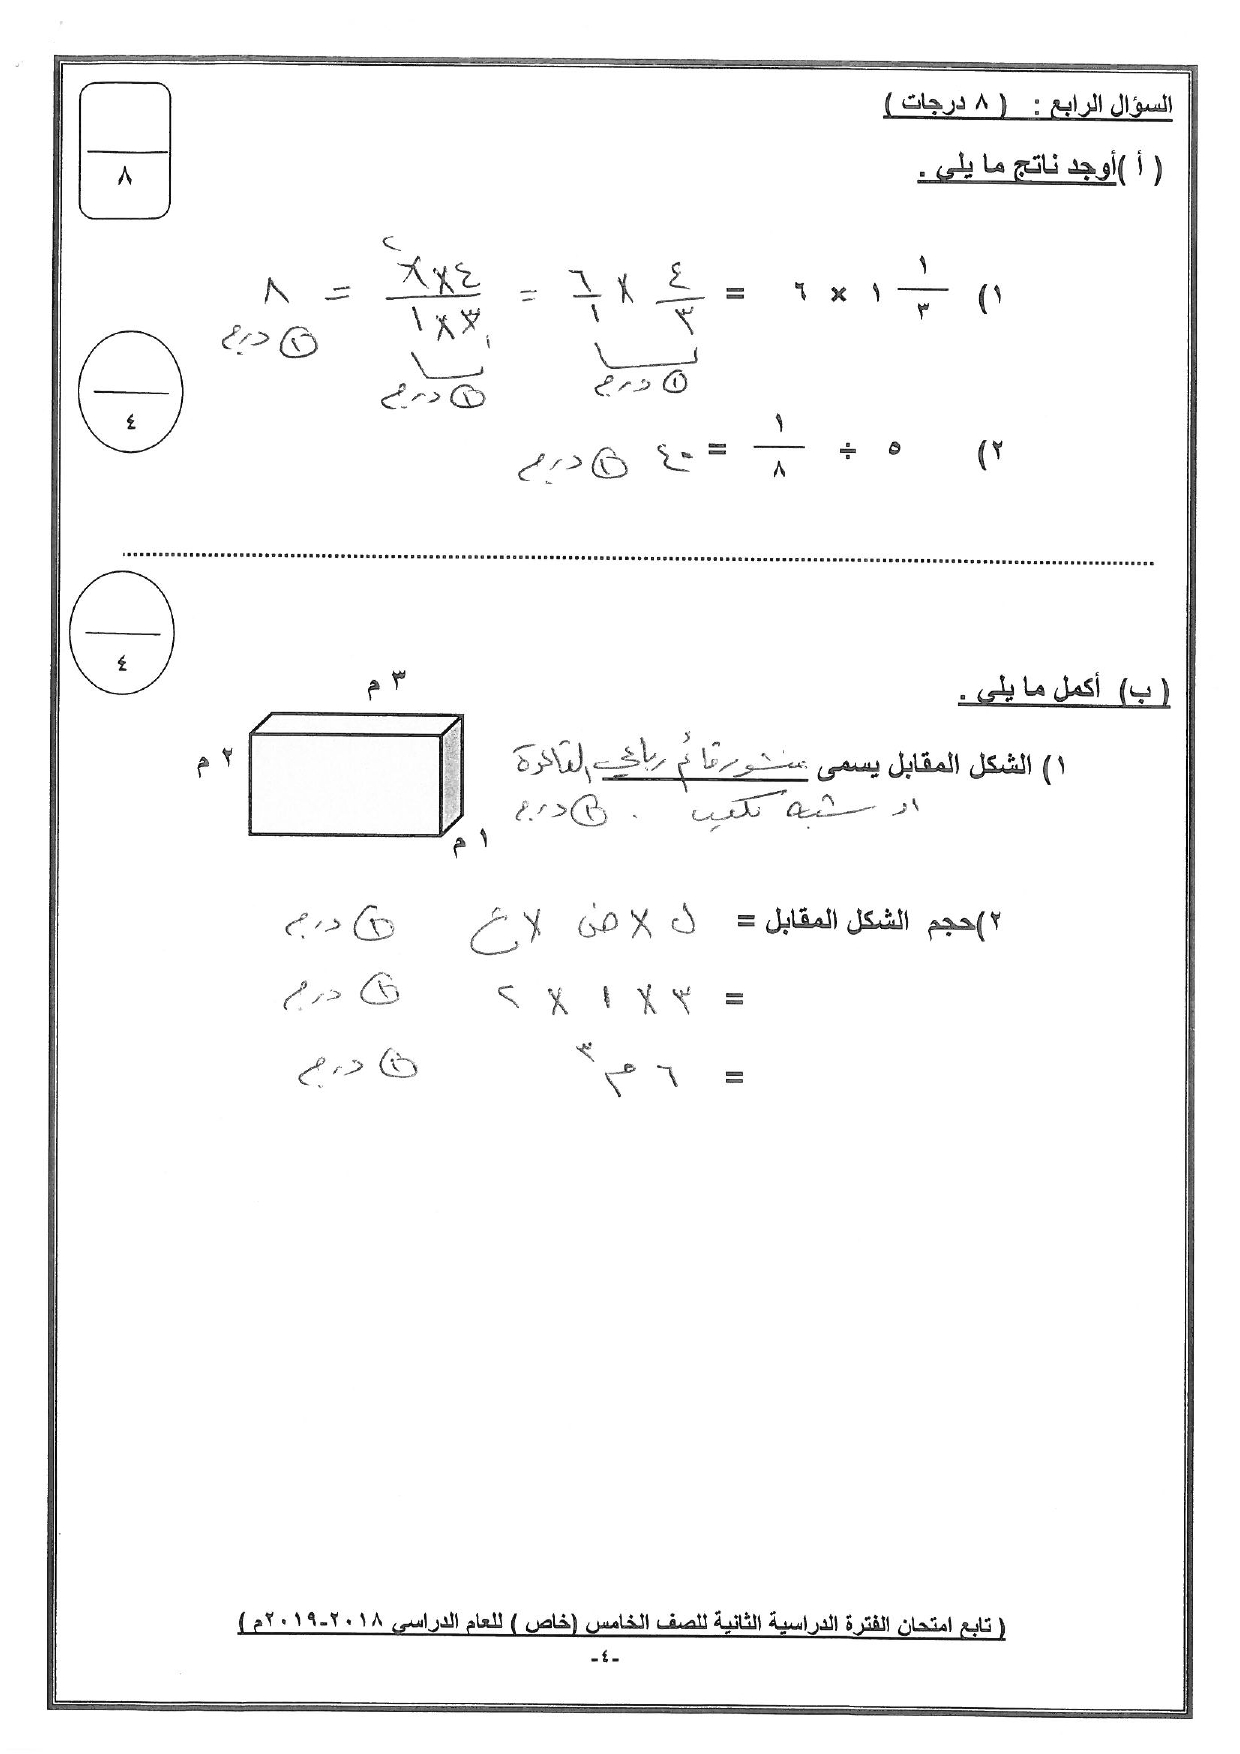 السؤال الرابع : ( ٨ درجات )
٨
( أ ) أوجد ناتج ما يلي .
١) ١/٣ ١ × ٦ = ٤/٣ × ٦/١ = ٤×٦/٣×١ = ٨
٢
١
① درجة ① درجة ① درجة
٤
٢) ٥ ÷ ١/٨ = ٤٠ ① درجة
٤
( ب) أكمل ما يلي .
٣ م
٢ م
١ م
١) الشكل المقابل يسمى منشور قائم رباعي القاعدة
او شبه مكعب . ① درجة
٢)حجم الشكل المقابل = ل × ض × ع ① درجة
= ٣ × ١ × ٢ ① درجة
= ٦ م٣ ① درجة
( تابع امتحان الفترة الدراسية الثانية للصف الخامس (خاص ) للعام الدراسي ٢٠١٨-٢٠١٩م )
-٤-